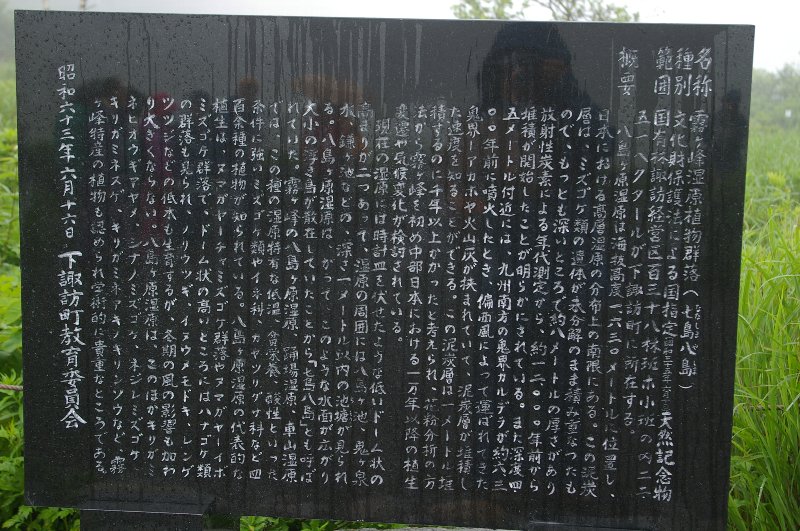 名称 霧ヶ峰湿原植物群落(七島八島)
種別 文化財保護法による国指定 天然記念物
範囲 国有林諏訪経営区百三十八林班ホ小班の内二二
五一八ヘクタールが下諏訪町に所在する。
概要 八島ヶ原湿原は海抜高度一六三〇メートルに位置し、
日本における高層湿原の分布上の南限にある。この泥炭
層は、ミズゴケ類の遺体が未分解のまま積み重なったも
ので、もっとも深いところで約八メートルの厚さがあり
放射性炭素による年代測定から、約一二〇〇〇年前から
堆積が開始したことが明らかにされている。また深度四・
五メートル付近には、九州南方の鬼界カルデラが約六三
〇〇年前に噴火したとき、偏西風によって運ばれてきた
鬼界-アカホヤ火山灰が挟まれていて、泥炭層が堆積し
た速度を知ることができる。この泥炭層は一メートル堆
積するのに千年以上かかったと考えられ、花粉分析の方
法から霧ヶ峰を初め中部日本における一万年以降の植生
変遷や気候変化が検討されている。
現在の湿原には時計皿を伏せたような低いドーム状の
高まりが二つあって、湿原の周囲には八島ヶ池、鬼ヶ泉
水、鎌ヶ池などの、深さ一メートル以内の池塘が見られ
る。八島ヶ原湿原は、かつて、このような水面が広がり
大小の浮き島が散在していたことから七島八島とも呼ば
れていた。霧ヶ峰の八島ヶ原湿原、踊場湿原、車山湿原
では、この種の湿原特有な低温、貧栄養、酸性といった
条件に強いミズゴケ類やイネ科、カヤツリグサ科など四
百余種の植物が知られている。八島ヶ原湿原の代表的な
植生は、ヌマガヤーチャミズゴケ群落やヌマガヤーイボ
ミズゴケ群落で、ドーム状の高いところにはハナゴケ類
の群落も見られ、ノリウツギ、イヌウメモドキ、レンゲ
ツツジなどの低木も生育するが、冬期の風の影響も加わ
り大きくならない。八島ヶ原湿原は、このほかキリガミ
ネヒオウギアヤメ、シナノミズゴケ、ネジレミズゴケ、
キリガミネスゲ、キリガミネアキノキリンソウなど、霧
ヶ峰特産の植物も認められ学術的に貴重なところである。
昭和六十三年六月十六日 下諏訪町教育委員会